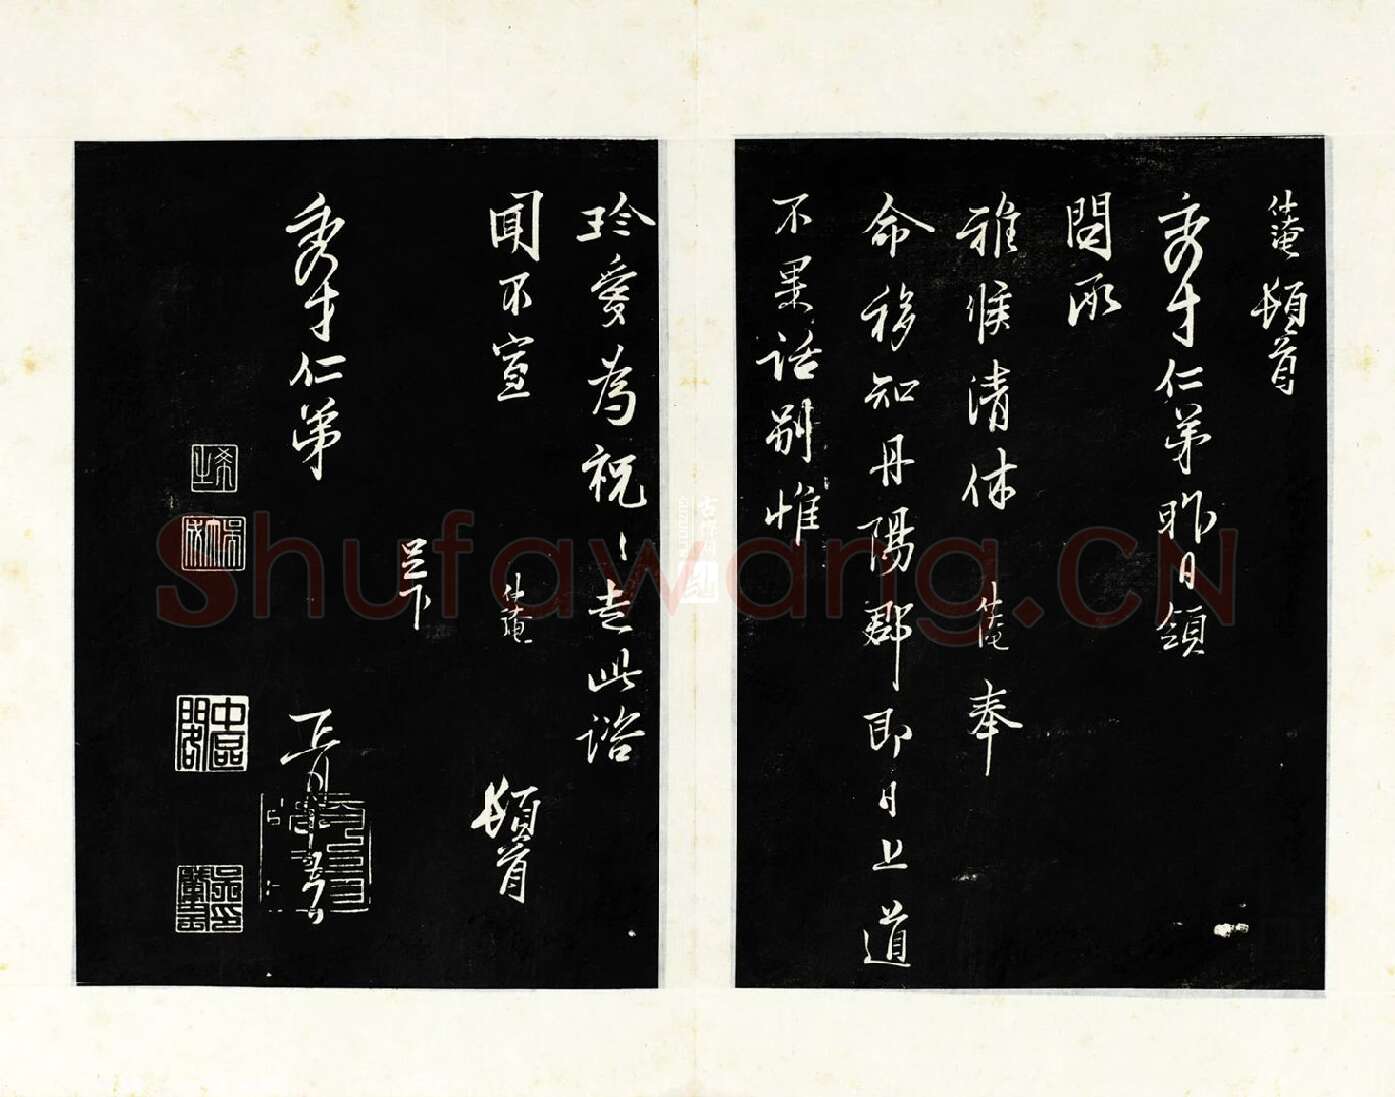 仲淹頓首
秀才仁弟昨日領
問承
雅候清休仲淹奉
命移知丹陽郡即日上道
不果話別惟
珍愛為祝〻走此諮
聞不宣 仲淹 頓首
足下
秀才仁弟 正月
Shufawang.CN